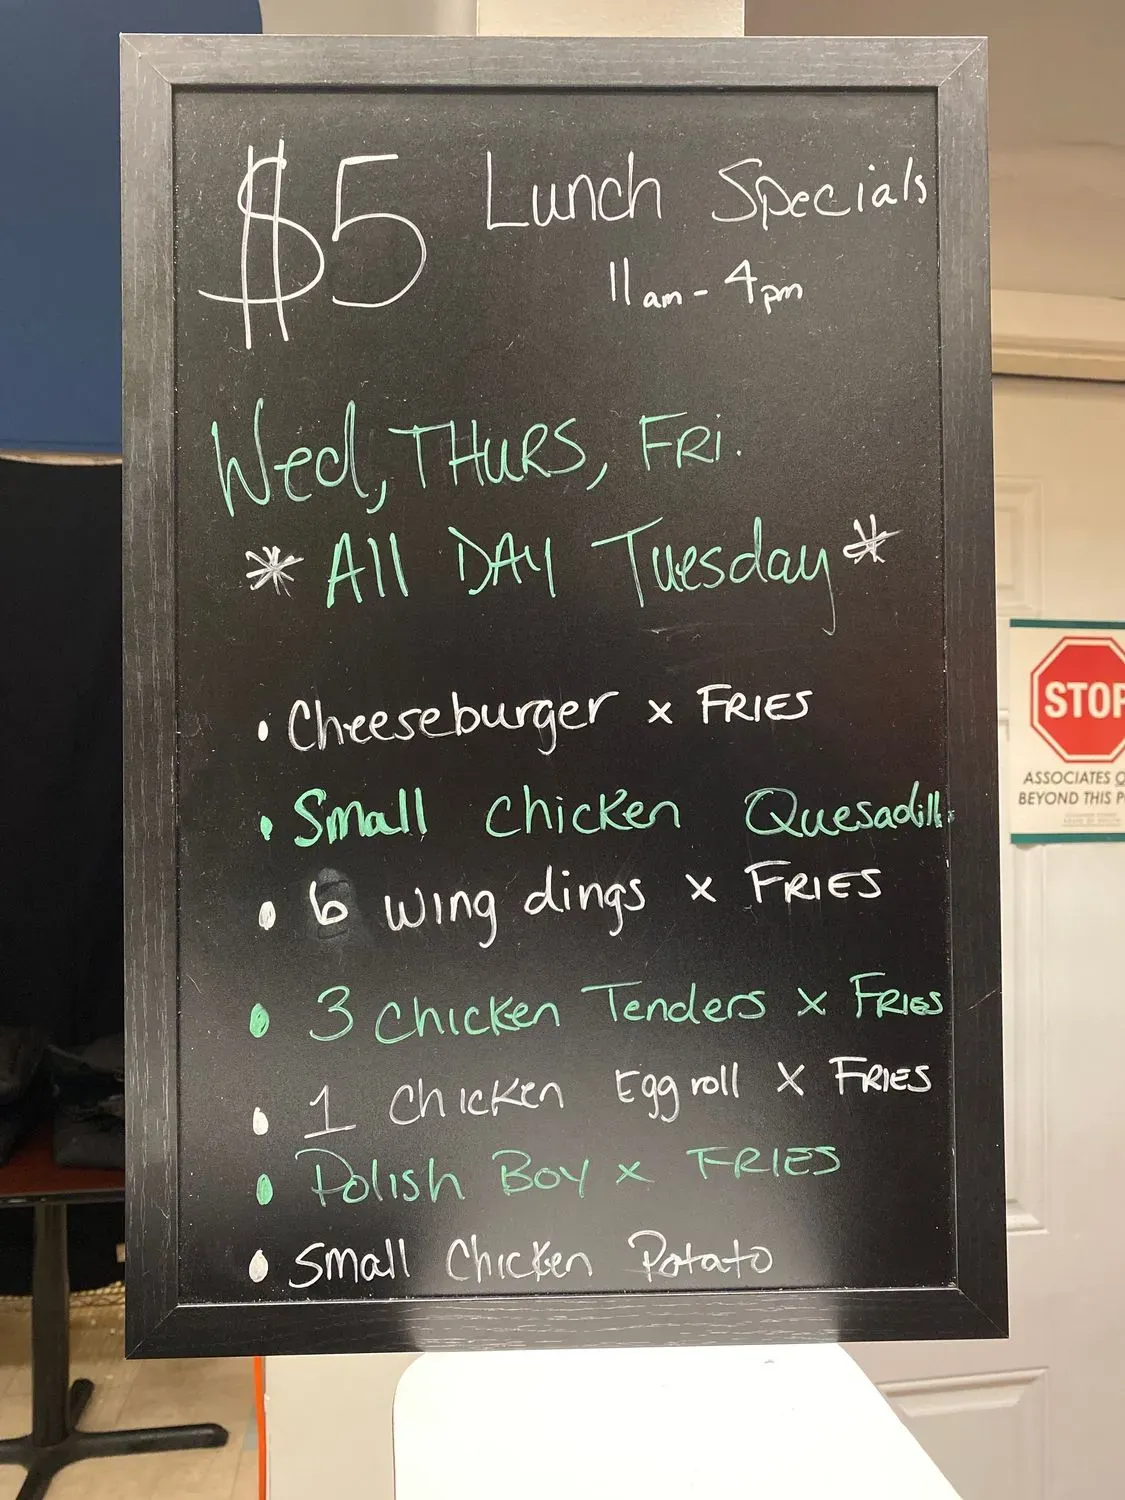 $5 Lunch Specials
11am - 4pm
Wed, THURS, FRI.
* All DAY Tuesday *
• Cheeseburger x FRIES
• Small Chicken Quesadilla
• 6 wing dings x FRIES
• 3 Chicken Tenders x FRIES
• 1 Chicken Egg roll x FRIES
• Polish Boy x FRIES
• Small Chicken Potato
STOP
ASSOCIATES
BEYOND THIS